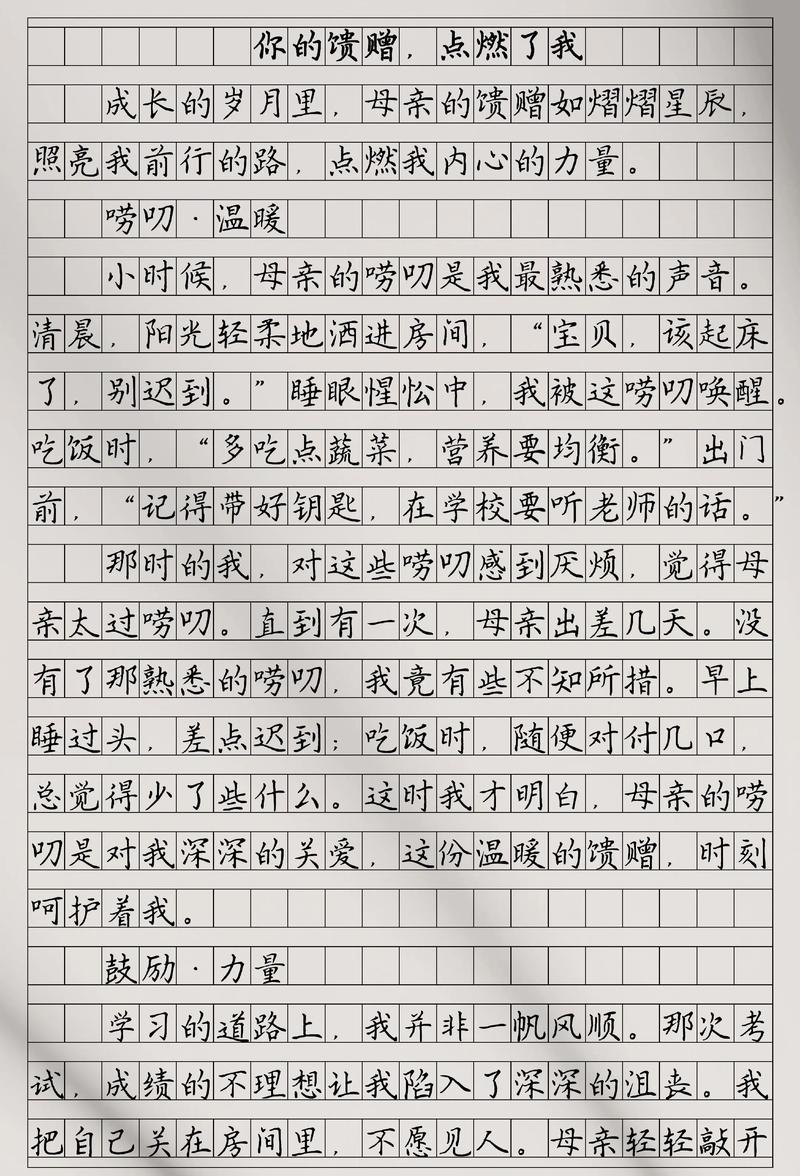 你的馈赠，点燃了我
成长的岁月里，母亲的馈赠如熠熠星辰，
照亮我前行的路，点燃我内心的力量。
唠叨·温暖
小时候，母亲的唠叨是我最熟悉的声音。
清晨，阳光轻柔地洒进房间，“宝贝，该起床
了，别迟到。”睡眼惺忪中，我被这唠叨唤醒。
吃饭时，“多吃点蔬菜，营养要均衡。”出门
前，“记得带好钥匙，在学校要听老师的话。”
那时的我，对这些唠叨感到厌烦，觉得母
亲太过唠叨。直到有一次，母亲出差几天。没
有了那熟悉的唠叨，我竟有些不知所措。早上
睡过头，差点迟到；吃饭时，随便对付几口，
总觉得少了些什么。这时我才明白，母亲的唠
叨是对我深深的关爱，这份温暖的馈赠，时刻
呵护着我。
鼓励·力量
学习的道路上，我并非一帆风顺。那次考
试，成绩的不理想让我陷入了深深的沮丧。我
把自己关在房间里，不愿见人。母亲轻轻敲开